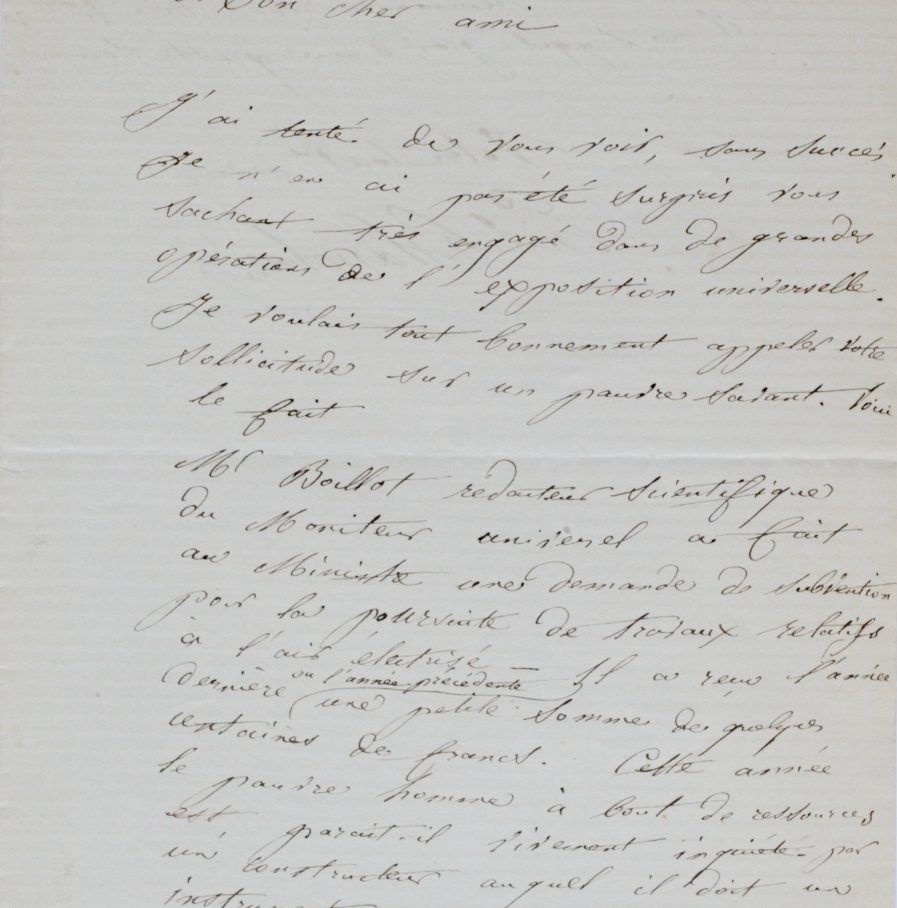 Mon cher ami
J'ai tenté de vous voir, sans succès.
Je n'en ai pas été surpris vous
sachant très engagé dans de grandes
opérations de l'exposition universelle.
Je voulais tout bonnement appeler votre
sollicitude sur un pauvre savant. Voici
le fait
Mr Boillot rédacteur scientifique
du Moniteur universel a fait
au Ministre une demande de subvention
pour la poursuite de travaux relatifs
à l'air électrisé – Il a reçu l'année
dernière ou l'année précédente
une petite somme de quelques
centaines de francs. Cette année
le pauvre homme à bout de ressources
est parait-il vivement inquiété par
un constructeur auquel il doit un